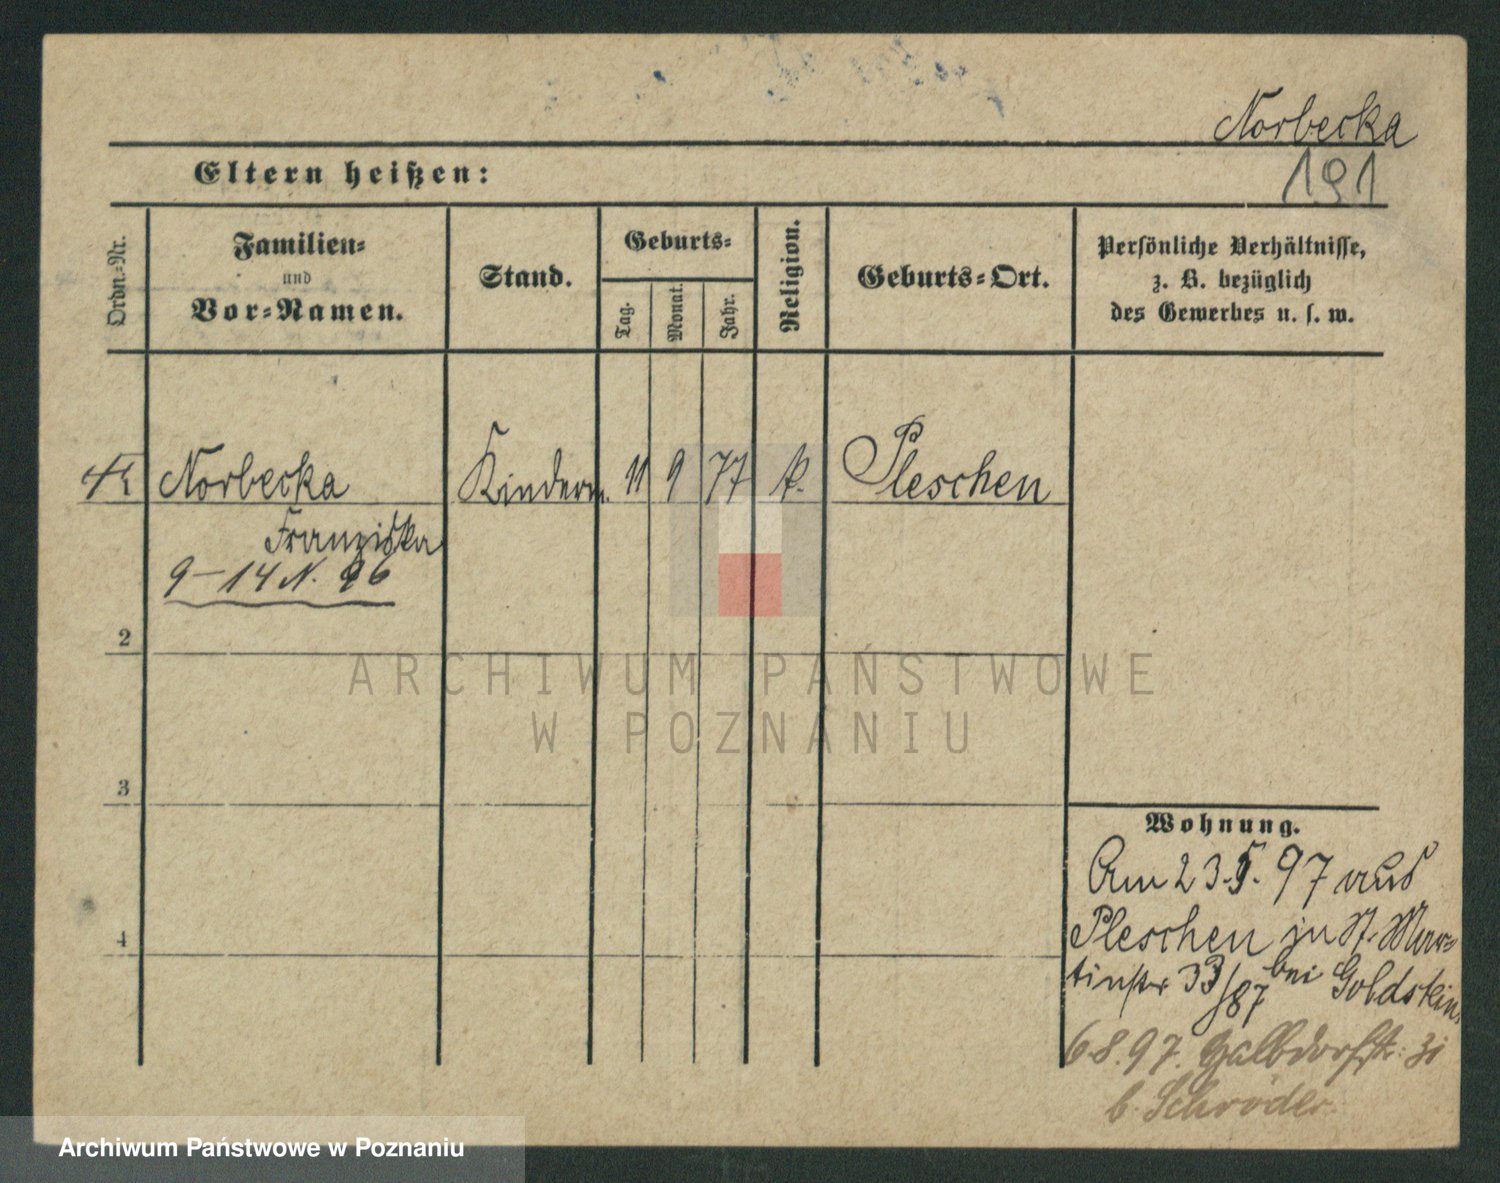 Norbecka
191
Eltern heißen:
Ordn.-Nr.
Familien-
und
Vor-Namen.
Stand.
Geburts-
Tag.
Monat.
Jahr.
Religion.
Geburts-Ort.
Persönliche Verhältnisse,
z. B. bezüglich
des Gewerbes u. s. w.
Norbecka Kinderm. 11 9 77 k. Pleschen
Franziska
9-14 N. 96
2
3
4
Wohnung.
Am 23.5.97 aus
Pleschen in St. Mar-
tinstr 33/87 bei Goldstein
6.8.97. Halbdorfstr. 31
b. Schröder
ARCHIWUM PAŃSTWOWE
W POZNANIU
Archiwum Państwowe w Poznaniu